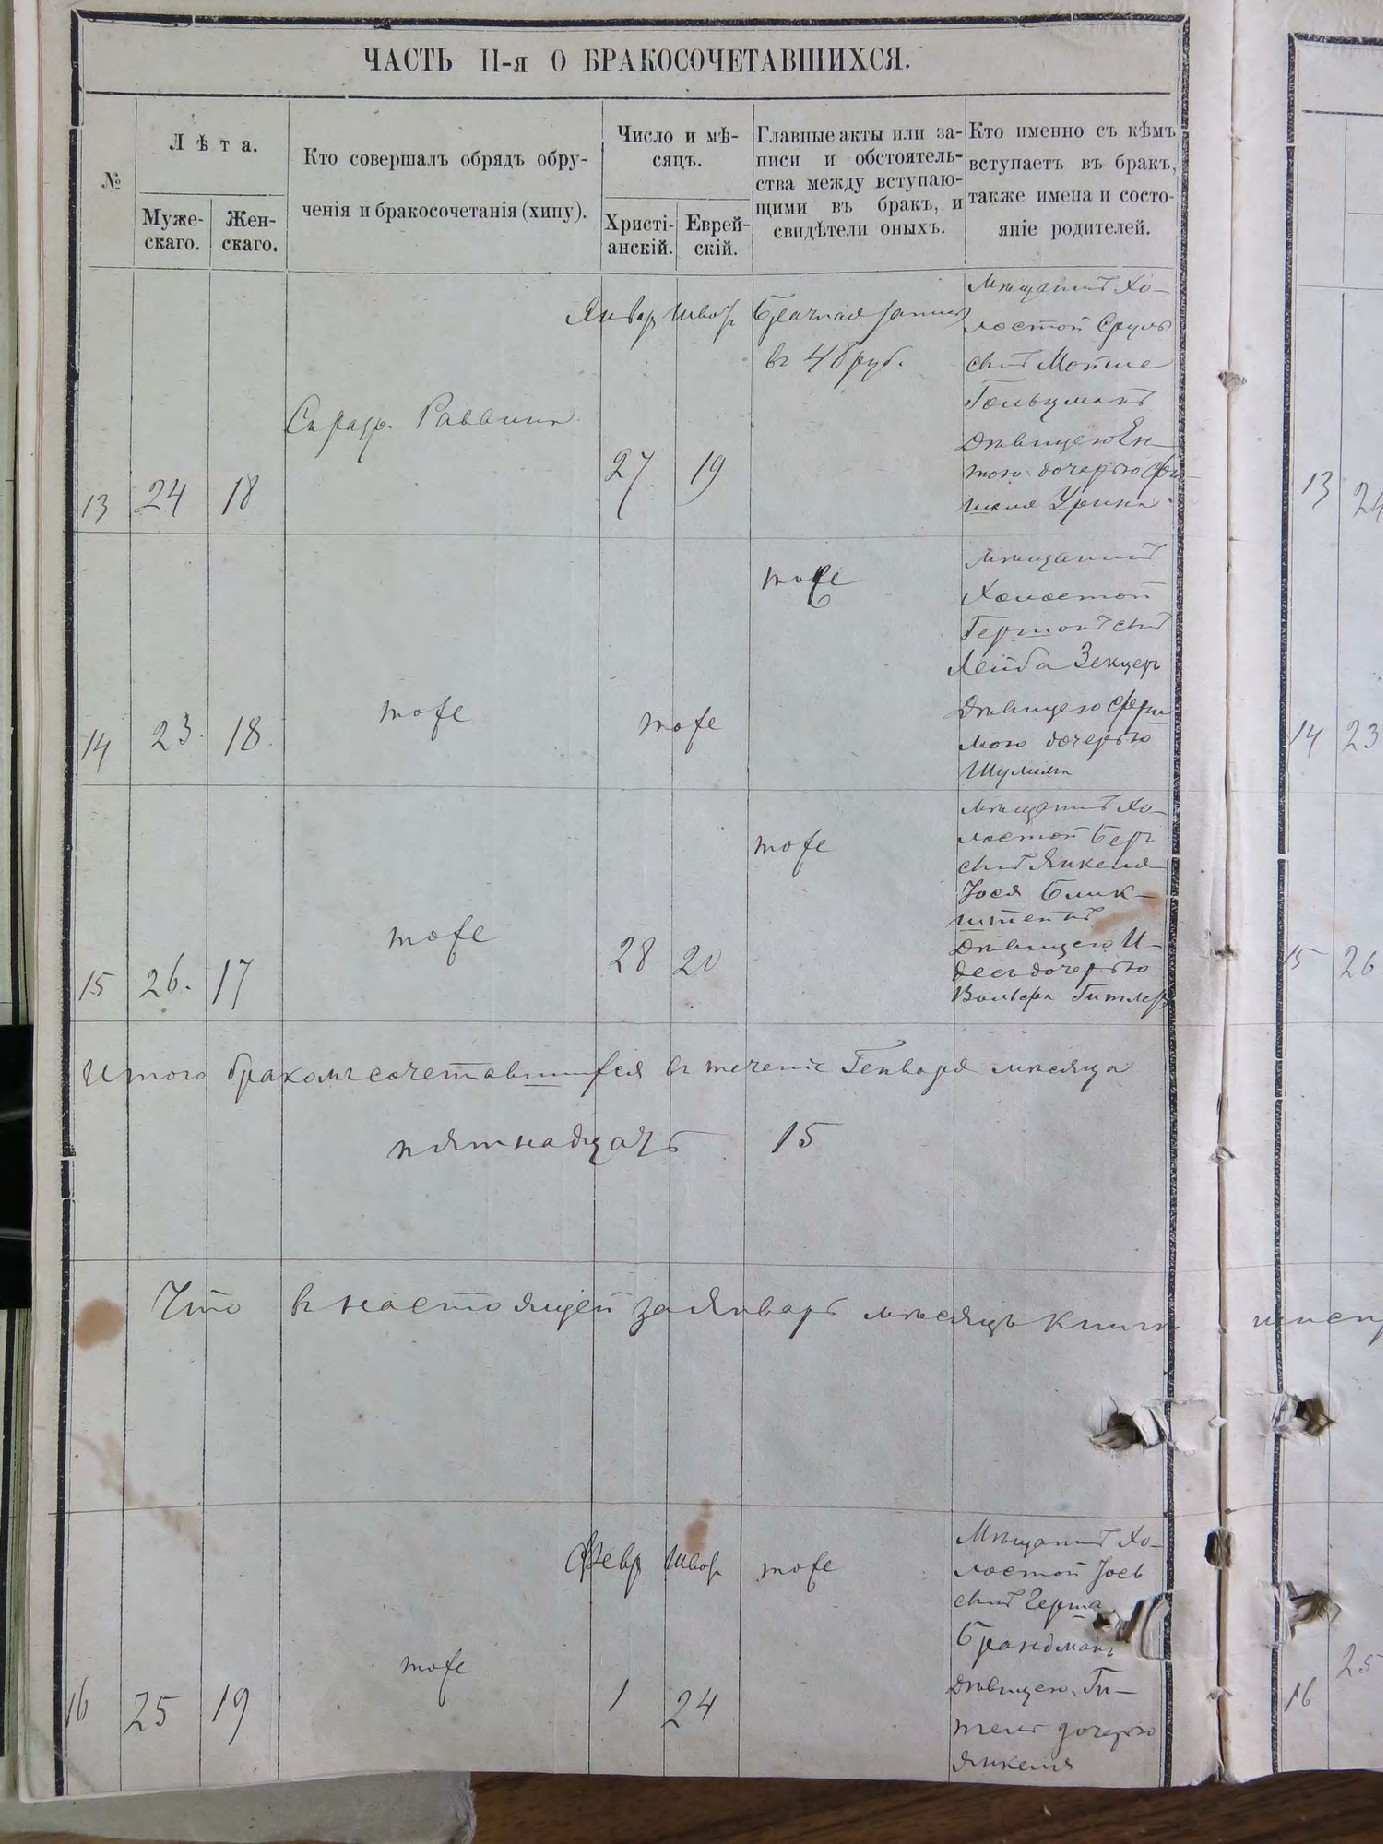 ЧАСТЬ II-я О БРАКОСОЧЕТАВШИХСЯ.
№
Лѣта.
Муже-
скаго.
Жен-
скаго.
Кто совершалъ обрядъ обру-
ченія и бракосочетанія (хипу).
Число и мѣ-
сяцъ.
Христі-
анскій.
Еврей-
скій.
Главные акты или за-
писи и обстоятель-
ства между вступаю-
щими въ бракъ, и
свидѣтели оныхъ.
Кто именно съ кѣмъ
вступаетъ въ бракъ,
также имена и состо-
яніе родителей.
13
24
18
Раввинъ
Январ
27
Швот
19
Брачная запись
въ 48 руб.
Мѣщанинъ Хо-
лостой Сруль
сынъ Мотше
Гольцманъ
дѣвицею Ен-
тою дочерью
14
23.
18.
тоже
тоже
тоже
Мѣщанинъ
Холостой
Гершонъ сынъ
Лейба Зекцеръ
дѣвицею
мою дочерью
Шулима
15
26.
17
тоже
28
20
тоже
Мѣщанинъ Хо-
лостой Беръ
сынъ Янкеля
Іося Блик-
штенъ
дѣвицею И-
десъ дочерью
Вольфа
Итого бракомъ сочетавшихся въ теченіе Генваря мѣсяца
пятнадцать 15
Что въ настоящей за Январь мѣсяцъ книги
16
25
19
тоже
Февр
1
Швот
24
тоже
Мѣщанинъ Хо-
лостой Іось
сынъ Герша
Брандманъ
дѣвицею Ги-
тель дочерью
Янкеля
13
24
14
23
15
26
16
25